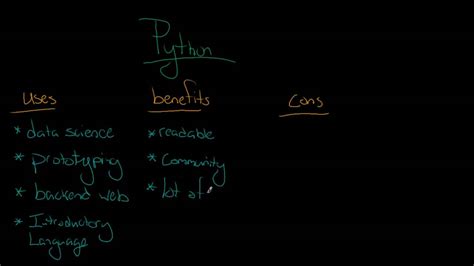 Python
uses
* data science
* prototyping
* backend web
* Introductory
Language
benefits
* readable
* Community
* lot of
cons